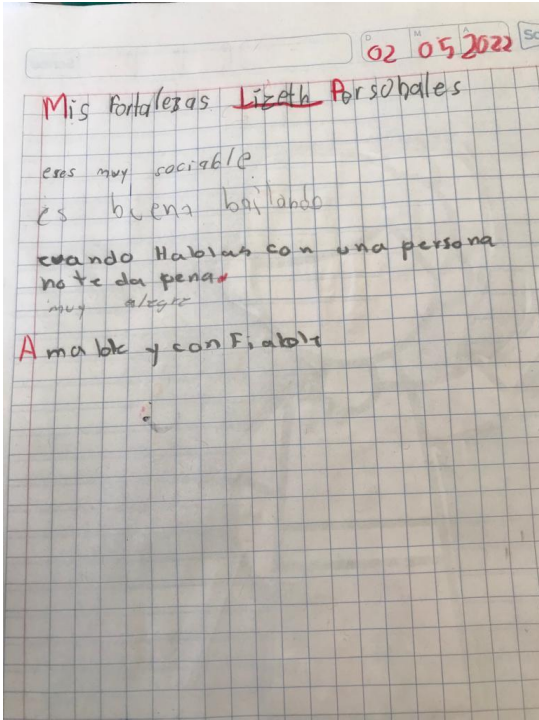 02 05 2022
Mis Fortalezas Lizeth Personales
eres muy sociable
es buena bailando
cuando Hablas con una persona
no te da pena.
muy alegre
Amable y confiable